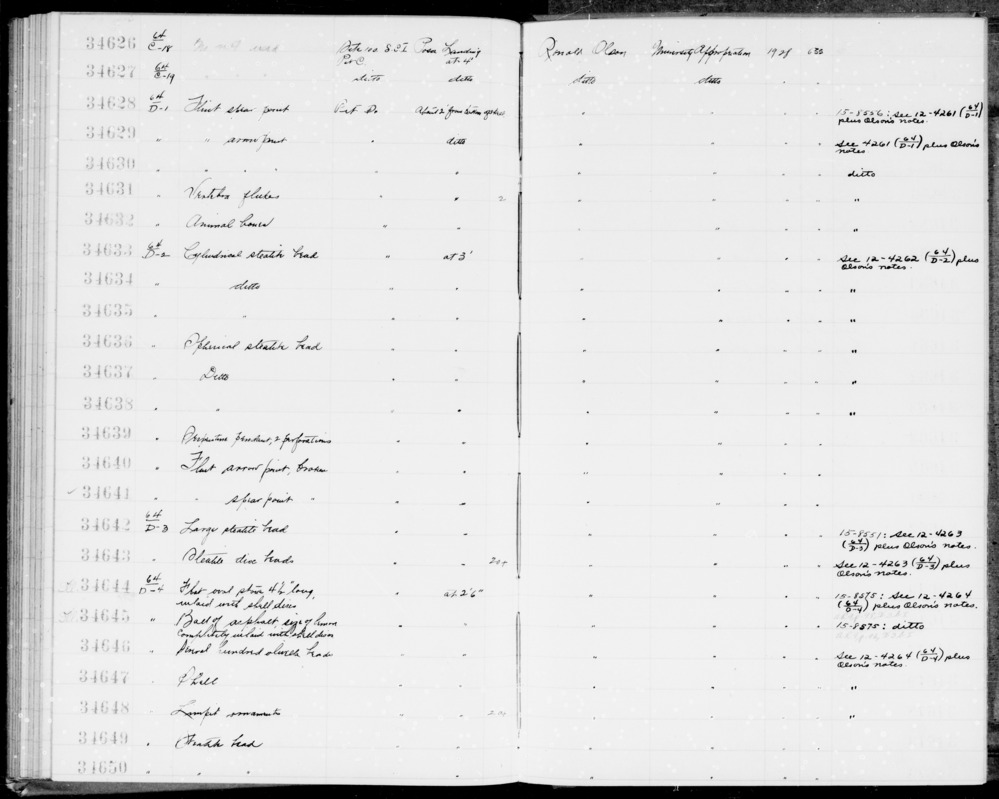 34626 64/C-18 bead Site 100 S.C.I. Posa Landing Ronald Olson University Appropriation 1928 633
Pit C at 4'
34627 64/C-19 " ditto ditto ditto ditto
34628 64/D-1 Flint spear point Pit D. 15-8556: See 12-4261 (64/D-1)
plus Olson's notes.
34629 " " arrow point " ditto " " " " See 4261 (64/D-1) plus Olson's
notes
34630 " " " " " " " " " " ditto
34631 " Vertebra " " 2 " " " " "
34632 " Animal bones " " " " " " "
34633 64/D-2 Cylindrical steatite bead " at 3' " " " " See 12-4262 (64/D-2) plus
Olson's notes.
34634 " ditto " " " " " " "
34635 " " " " " " " " "
34636 " Spherical steatite bead " " " " " " "
34637 " Ditto " " " " " " "
34638 " " " " " " " " "
34639 " Serpentine pendant, 2 perforations " " " " " "
34640 " Flint arrow point, broken " " " " " "
✓ 34641 " " spear point " " " " " " "
34642 64/D-3 Large steatite bead " " " " " " 15-8551: See 12-4263
(64/D-3) plus Olson's notes.
34643 " Steatite disc beads " " " " " " See 12-4263 (64/D-3) plus
Olson's notes.
34644 64/D-4 Flat oval stone 4½" long, " at 2'6" " " " " 15-8575: See 12-4264
inlaid with shell discs (64/D-4) plus Olson's notes.
34645 " Ball of asphalt, size of lemon " " " " " " 15-8575: ditto
completely inlaid with shell discs
34646 " Several hundred olivella beads " " " " See 12-4264 (64/D-4) plus
Olson's notes.
34647 " Shell " " " " " " "
34648 " Limpet ornaments " " " " " " "
34649 " Steatite bead " " " " " "
34650 " " " " " " " " "